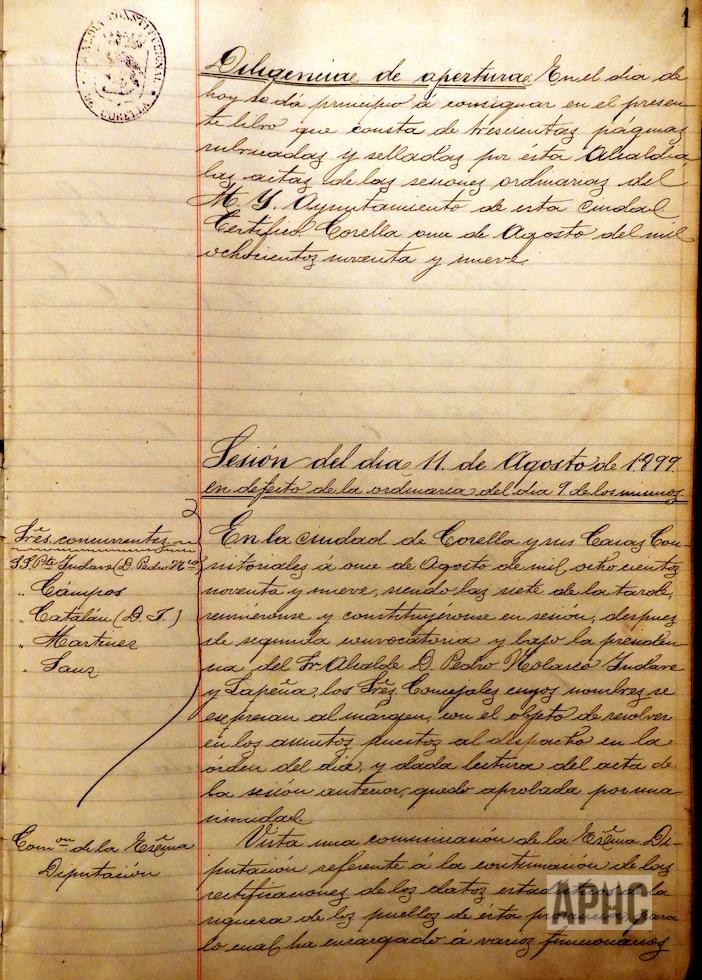 1
ALCALDIA CONSTITUCIONAL
DE CORELLA
Diligencia de apertura. En el dia de
hoy se dá principio á consignar en el presen-
te libro que consta de trescientas páginas
rubricadas y selladas por ésta Alcaldia
las actas de las sesiones ordinarias del
M. Y. Ayuntamiento de esta ciudad.
Certifico. Corella once de Agosto del mil
ochocientos noventa y nueve.
Sesión del dia 11 de Agosto de 1899
en defecto de la ordinaria del dia 9 de los mismos
Sres. concurrentes
(D. Pedro N.co)
" Cámpos
" Catalán (D. T.)
" Martinez
" Sanz
En la ciudad de Corella y sus Casas Con-
sitoriales á once de Agosto de mil ochocientos
noventa y nueve, siendo las siete de la tarde,
reuniéronse y constituyéronse en sesión, despues
de segunda convocatoria y bajo la presiden-
cia del Sr. Alcalde D. Pedro Nolasco
y Lapeña, los Sres. Concejales cuyos nombres se
expresan al márgen, con el objeto de resolver
en los asuntos puestos al despacho en la
órden del dia, y dada lectura del acta de
la sesión anterior, quedo aprobada por una-
nimidad.
Com.on de la Excma
Diputación
Vista una comunicación de la Excma Di-
putación referente á la continuación de las
rectificaciones de los datos estadisticos de la
riqueza de los pueblos de ésta provincia, para
lo cual ha encargado á varios funcionarios
APHC